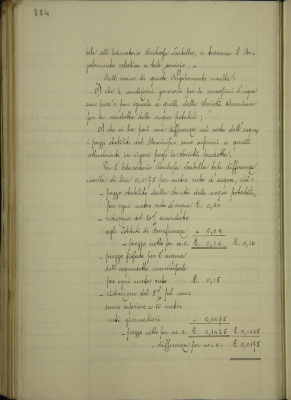 884
tale all'Educatorio Archefa Isabella, e trasmise il Re-
golamento relativo a tale servizio. -
Dall'esame di questo Regolamento risulta:
1) che le condizioni generali per le concessioni d'acqua
sono quasi pari eguale a quelle della Società
per la condotta delle acque potabili;
2) che vi ha però una differenza nel costo dell'acqua,
i prezzi stabiliti dal Municipio sono inferiori a quelli
attualmente in vigore presso la Società predetta.
Per l'Educatorio Archefa Isabella tale differenza
risulta di lire 0,0175 per metro cubo d'acqua, cioè:
- prezzo stabilito dalla Società delle acque potabili,
per ogni metro cubo d'acqua £. 0,20
- riduzione del 20% accordato
agli Istituti di Beneficenza - 0,04
- prezzo netto per m.c. £. 0,16 £. 0,16
- prezzo fissato per l'acqua
dell'acquedotto municipale
per ogni metro cubo £. 0,15
- riduzione del 5% pel con-
sumo inferiore a 50 metri
cubi giornalieri - 0,0075
- prezzo netto per m.c. £. 0,1425 £. 0,1425
- differenza per m.c. £. 0,0175